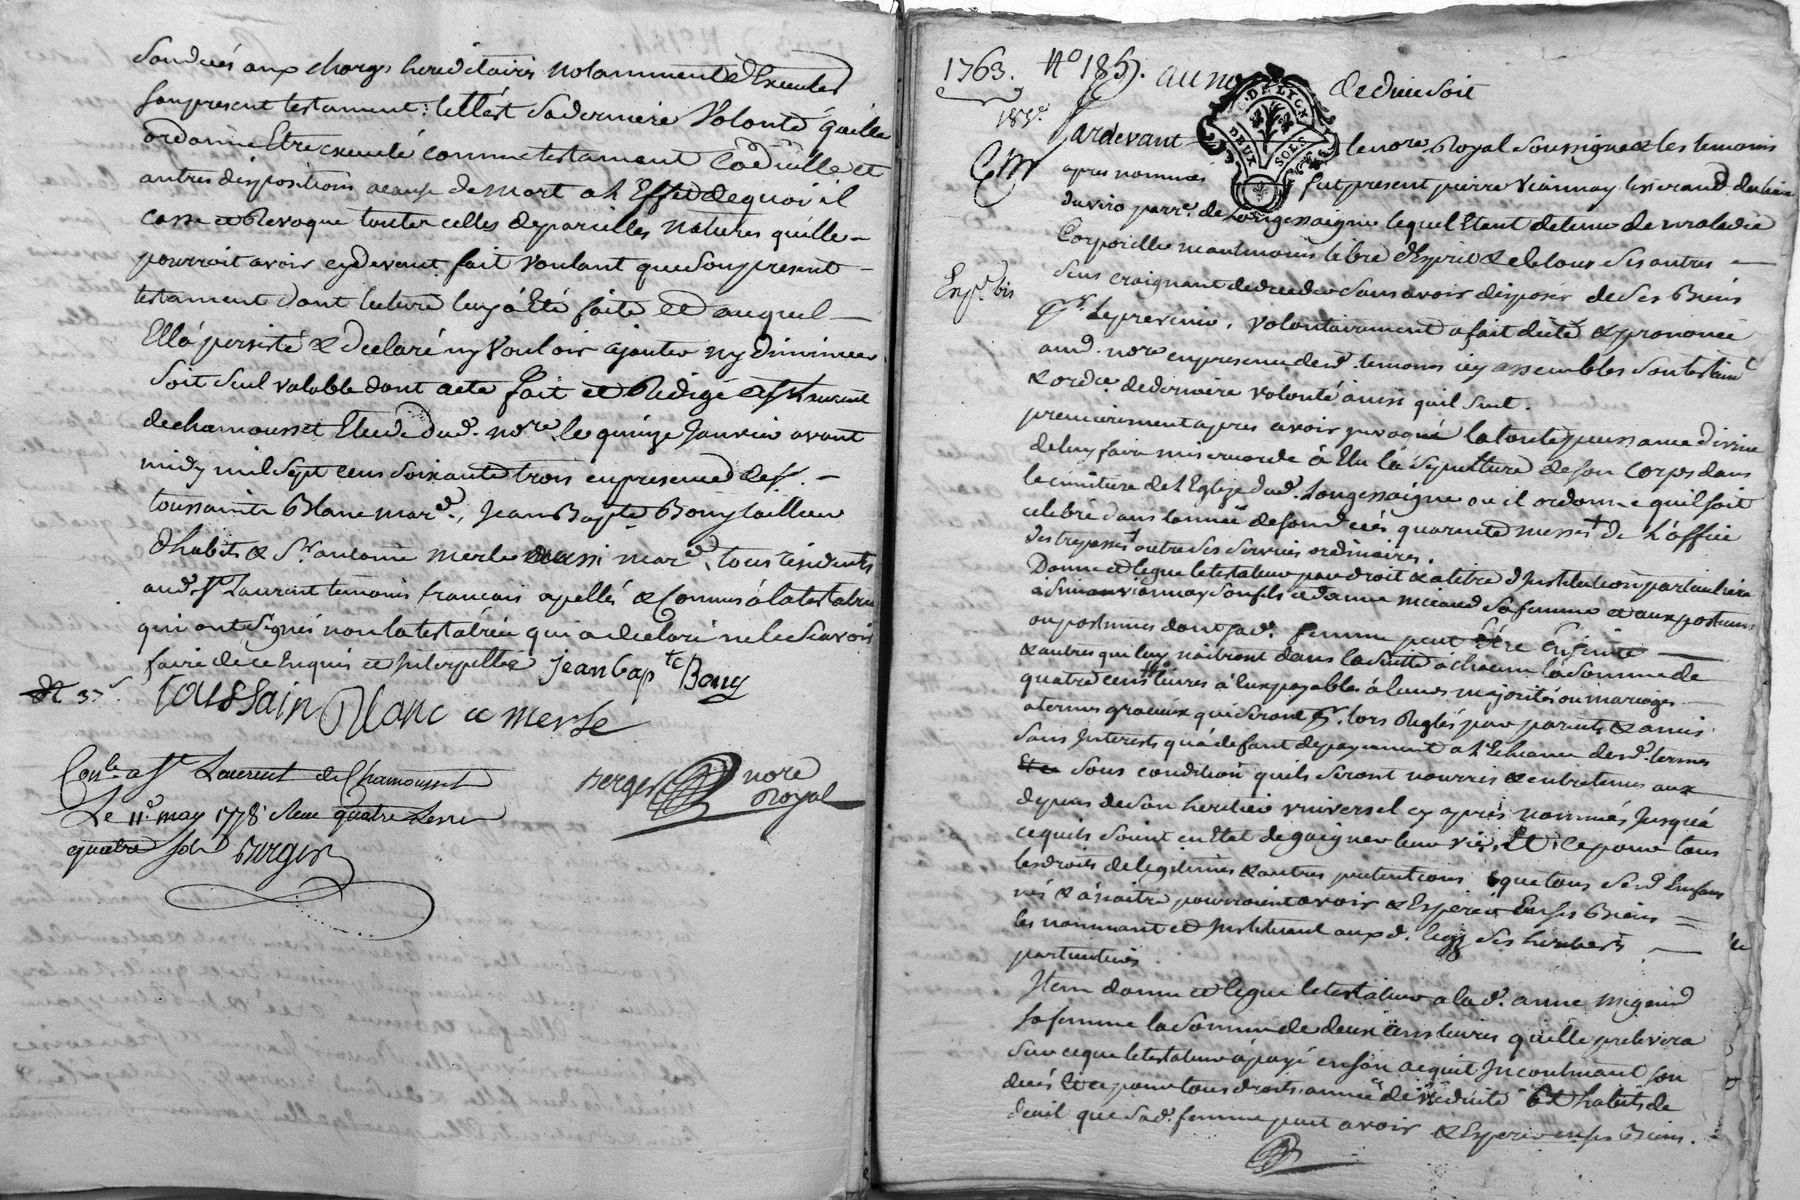 son décés aux charges hereditaires notamment d'Executer
son present testament: telle Est sa derniere Volonté qu'elle
ordonne Etre executé comme testament Codicille et
autres dispositions acause de mort a L'Effet de quoi il
casse et Revoque toutes celles depareilles natures qu'elle
pourroit avoir cydevant fait voulant que son present
testament dont lecture luy a Eté faite et auquel
Ella persisté & declaré ny vouloir ajouter ny diminuer
soit seul valable dont acte fait et Redigé a St Laurent
de chamousset Etude dud. nore. le quinze Janvier avant
midy mil sept cens soixante trois en presence de Sr.
toussaint Blanc mard., Jean Bapte Bony tailleur
d'habits & Sr. antoine merle aussi mard. tous residents
aud. St Laurent temoins francais apellés & Connus a la testatrice
qui ont signés non la testatrice qui a declaré ne le scavoir
faire de ce Enquis et Interpellée Jean bapte Bony
Toussain Blanc a merle
Conlé a St Laurent de Chamousset
Le 11e. may 1778 Reçu quatre Livres
quatre sols Berger
Berger nore Royal
1763. No 185. au no de dieu soit
185e
Pardevant le nore. Royal soussigné & les temoins
apres nommés fut present pierre Viannay tisserand du lieu
du viro parre. de Longessaigne lequel Etant detenu de maladie
Corporelle neantmoins libre d'Esprit & de tous ses autres
sens craignant de deceder sans avoir disposé de ses Biens
Expe. bis
pr. le prevenir, volontairement a fait dicté & prononcé
aud. nore en presence desd. temoins icy assemblés son testamt
& ordce. de derniere volonté ainsi quil suit.
premierement apres avoir invoqué la toute puissance divine
de luy faire misericorde a Elu la sepulture de son Corps dans
le cimitiere de L'Eglize dud. Longessaigne ou il ordonne quil soit
celebré dans lannée de son décés quarante messes de L'office
des trepassés outre ses services ordinaires.
Donne et legue le testateur par droit & a titre d'Institution particuliere
a Simon Viannay son fils et d'anne migeaud sa femme et aux postumes
ou postumes dont sad. femme peut être Enceinte
& autres qui luy naitront dans la suite a chacun la somme de
quatre cens livres a Eux payables a leurs majorités ou mariages
a termes gracieux qui seront pr. lors Reglés par parents & amis
sans Interests qu'a defaut de payement a L'Echeance desd. termes
sous condition quils seront nourris & entretenus aux
depens de son heritier universel cy aprés nommés Jusqu'a
cequils soient en Etat de gaigner leur vie, Et ce pour tous
les droits de legitimes & autres pretentions que tous sesd Enfans
nés & a naitre pourroient avoir & Esperer En ses Biens
les nommant et Instituant auxd. legs ses heritiers
particuliers.
Item donne et legue le testateur a lad. anne migeaud
sa femme la somme de deux cens livres qu'elle prelevera
sur ceque le testateur a payé en son acquit Incontinant son
décés Et ce pour tous droits année de viduité Et habits de
deuil que sad. femme peut avoir & Esperer en ses Biens.